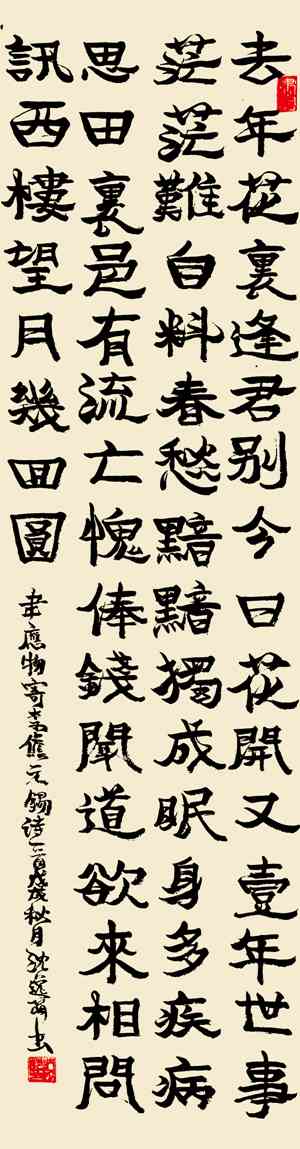 去年花裏逢君別今日花開又壹年世事
茫茫難自料春愁黯黯獨成眠身多疾病
思田裏邑有流亡愧俸錢聞道欲來相問
訊西樓望月幾回圓
韋應物寄李儋元錫詩一首戊戌秋月沈書